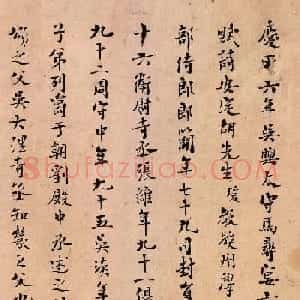 慶曆六年吳興太守馬尋宴六
賦詩安定胡先生瑗教授湖學
部侍郎郎簡年七十九司封員
十六衛尉寺丞張維年九十一俱
九十二周守中年九十五吳琰年
子弟列爵于朝劉殿中丞述之
頌之父吳大理寺丞知幾之父也